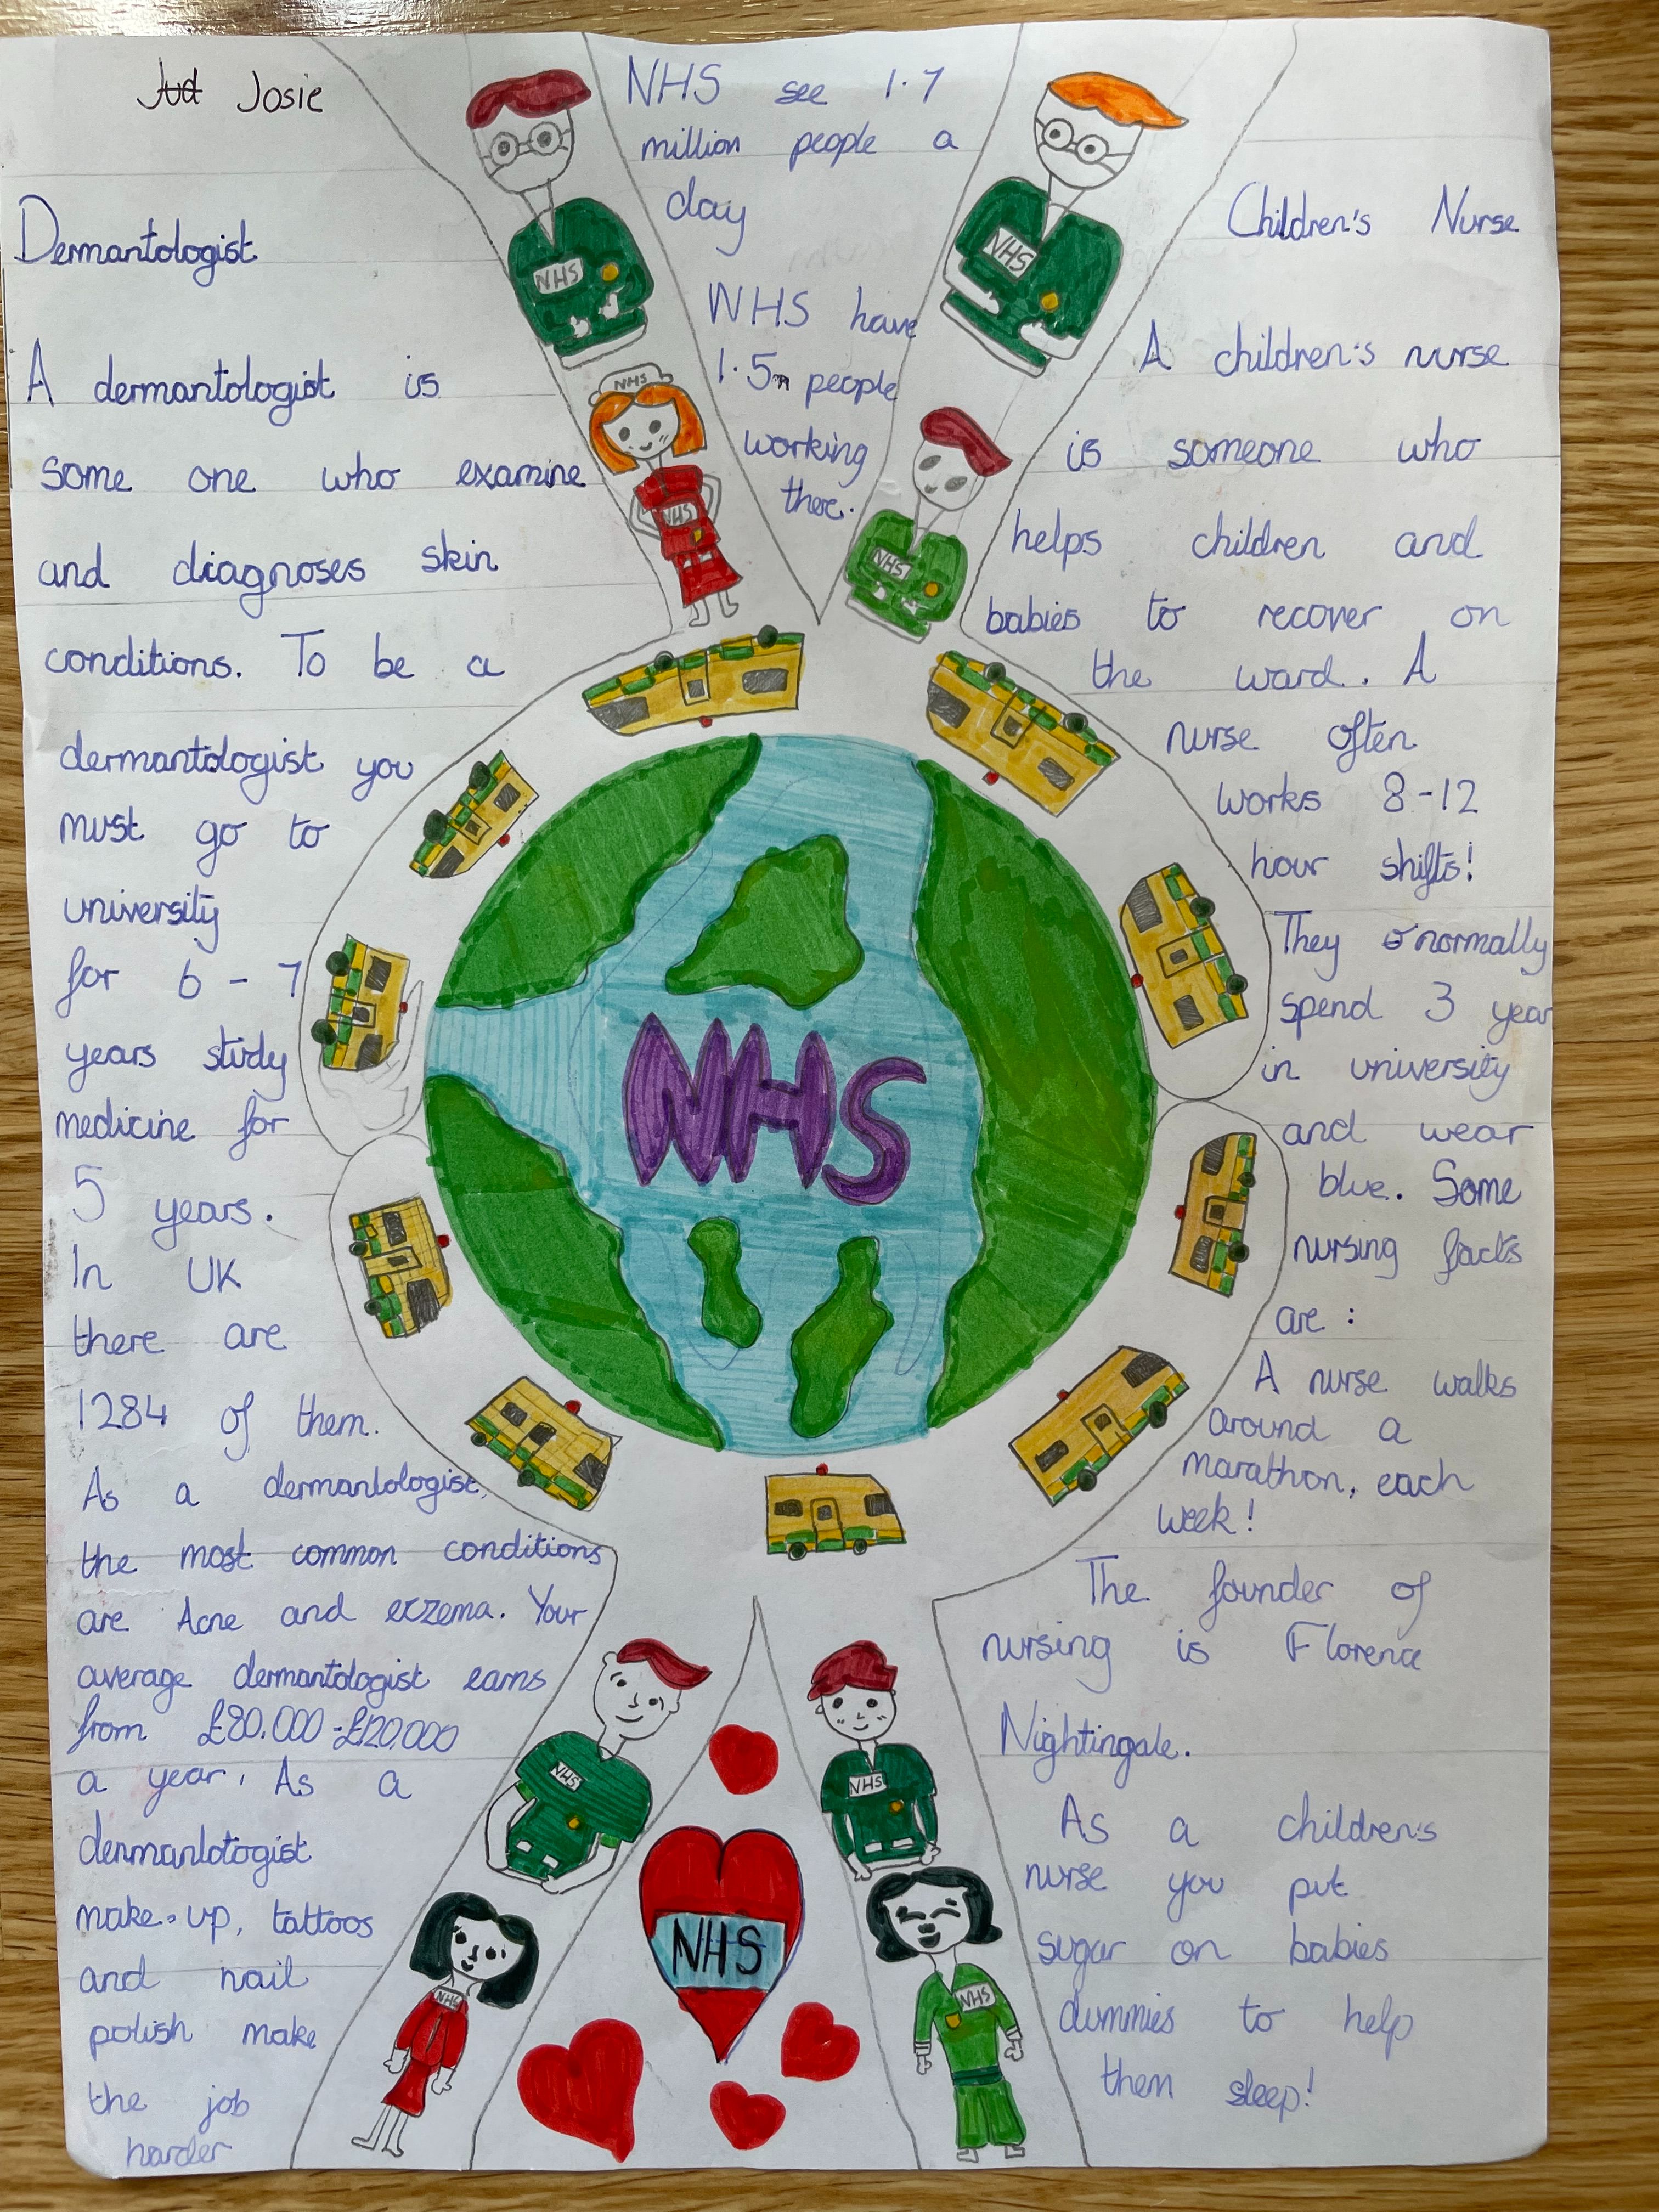 Jud Josie
Dermantologist
A dermantologist is
some one who examine
and diagnoses skin
conditions. To be a
dermantologist you
must go to
university
for 6 - 7
years study
medicine for
5 years.
In UK
there are
1284 of them.
As a dermantologist,
the most common conditions
are Acne and exzema. Your
average dermantologist earns
from £80,000-£120,000
a year. As a
dermantotogist
make-up, tattoos
and nail
polish make
the job
harder
NHS see 1.7
million people a
day
NHS have
1.5m people
working
there.
Children's Nurse
A children's nurse
is someone who
helps children and
babies to recover on
the ward. A
nurse often
works 8-12
hour shifts!
They normally
spend 3 year
in university
and wear
blue. Some
nursing facts
are:
A nurse walks
around a
marathon, each
week!
The founder of
nursing is Florence
Nightingale.
As a children's
nurse you put
sugar on babies
dummies to help
them sleep!
NHS
NHS
NHS
NHS
NHS
NHS
NHS
NHS
NHS
NHS
NHS
NHS